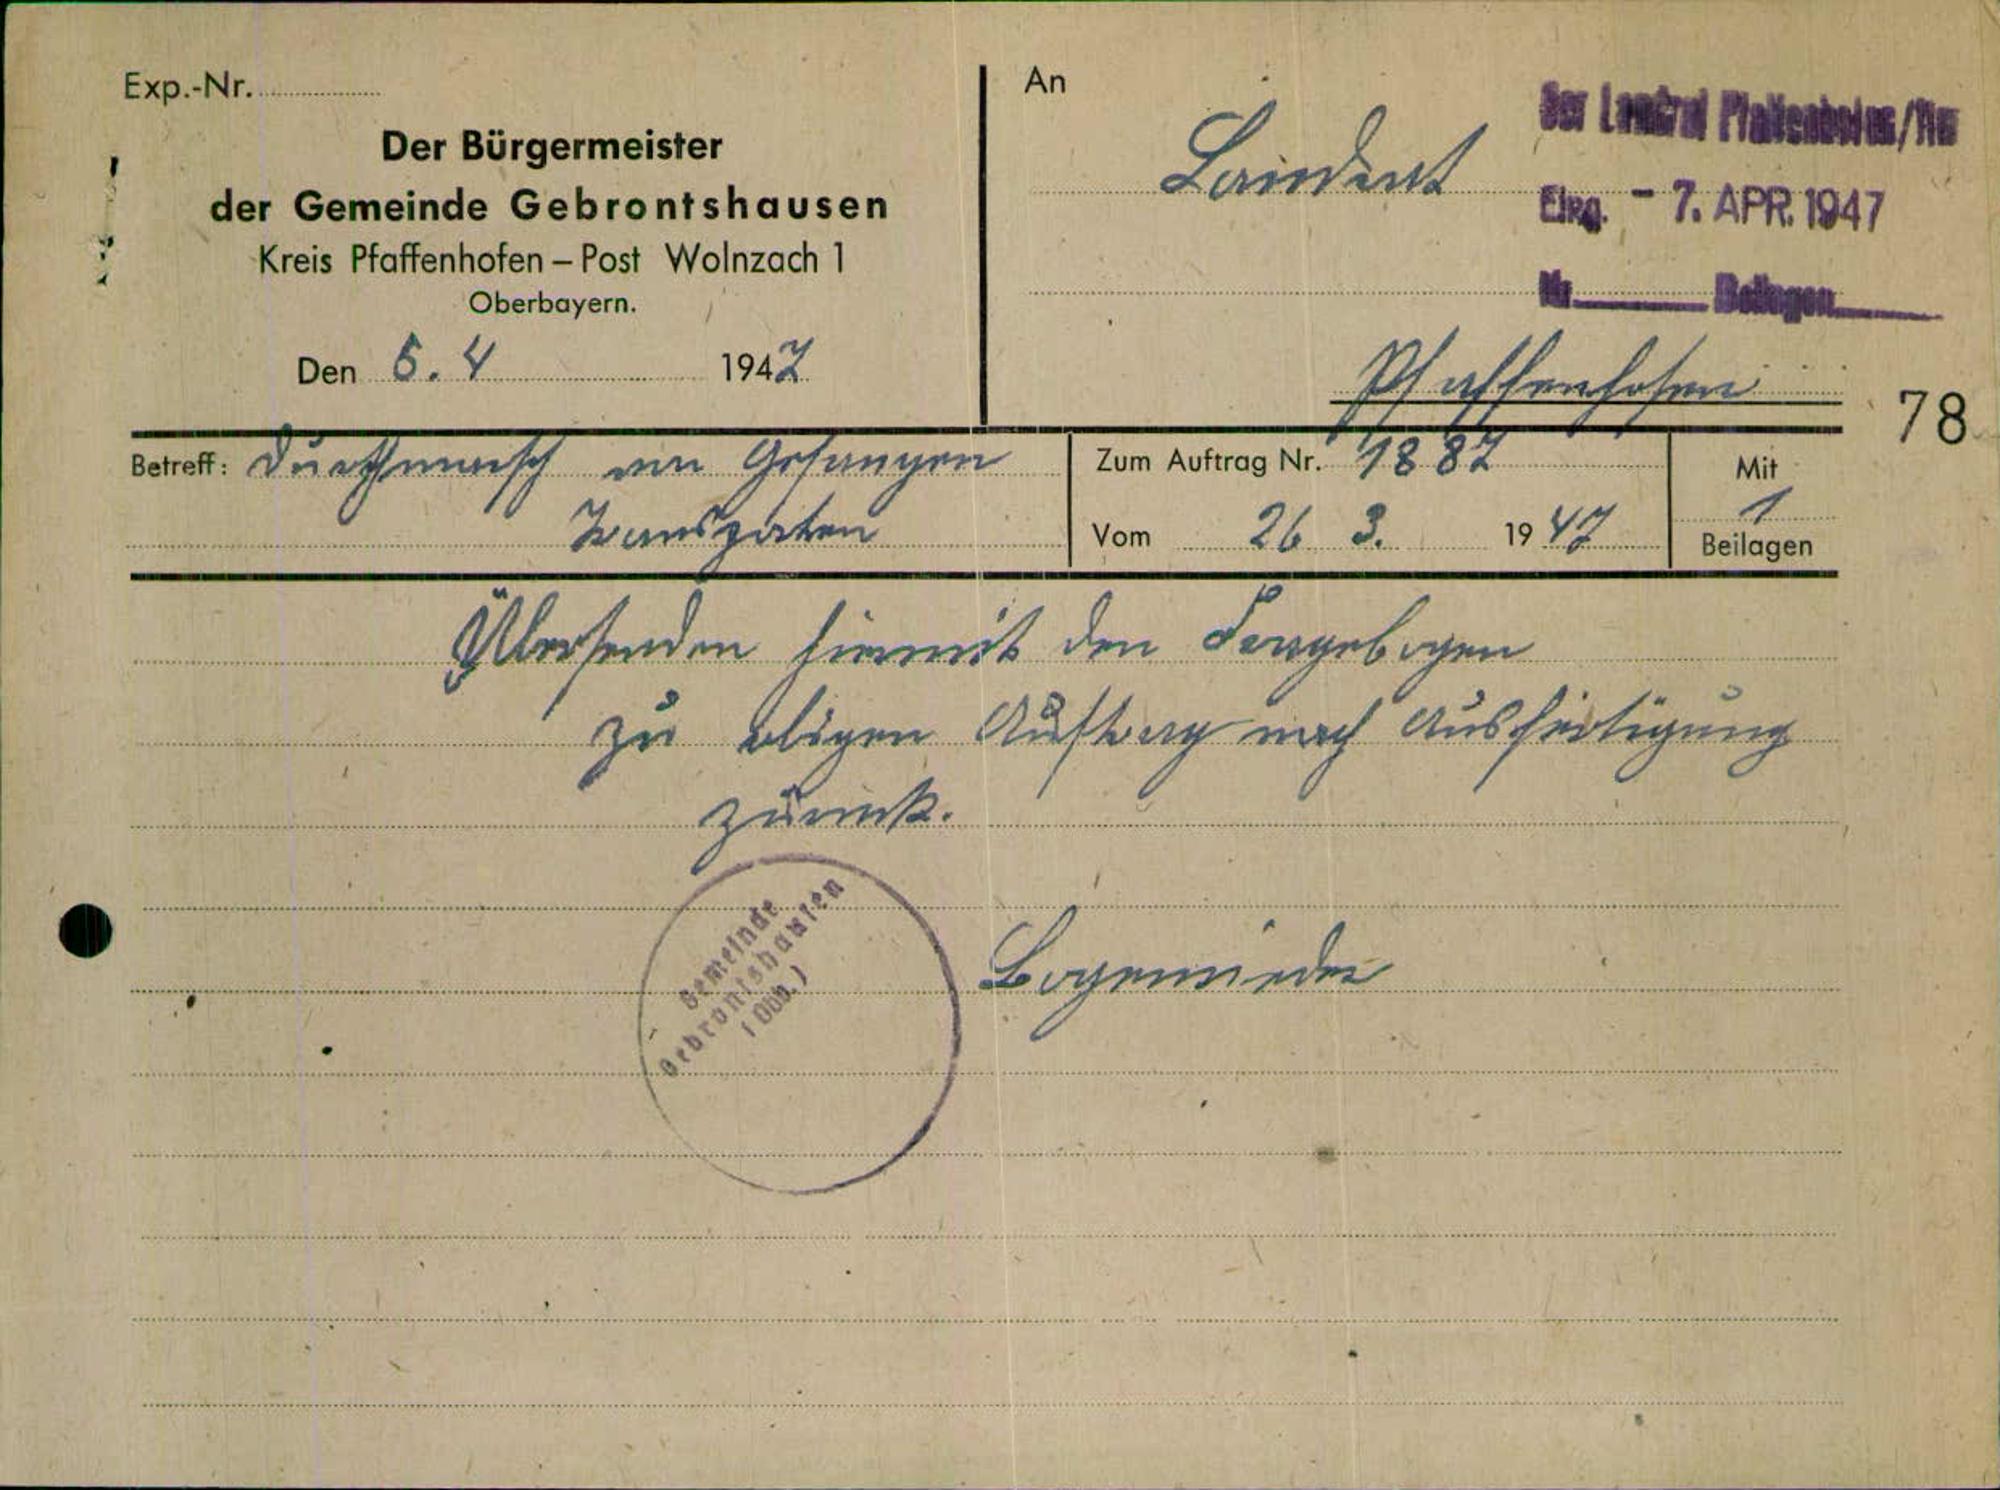 Exp.-Nr.
Der Bürgermeister
der Gemeinde Gebrontshausen
Kreis Pfaffenhofen – Post Wolnzach 1
Oberbayern.
Den 5. 4 1947
An
Landrat
Pfaffenhofen
Der Landrat Pfaffenhofen/Ilm
Eing. - 7. APR. 1947
Nr. Beilagen
78
Betreff: Durchmarsch von Gefangen
Transporten
Zum Auftrag Nr. 1887
Vom 26 3. 1947
Mit
1
Beilagen
Übersenden hiermit den Fragebogen
zu obigen Auftrag nach Ausfertigung
zurück.
Gemeinde
Gebrontshausen
(Obb.)